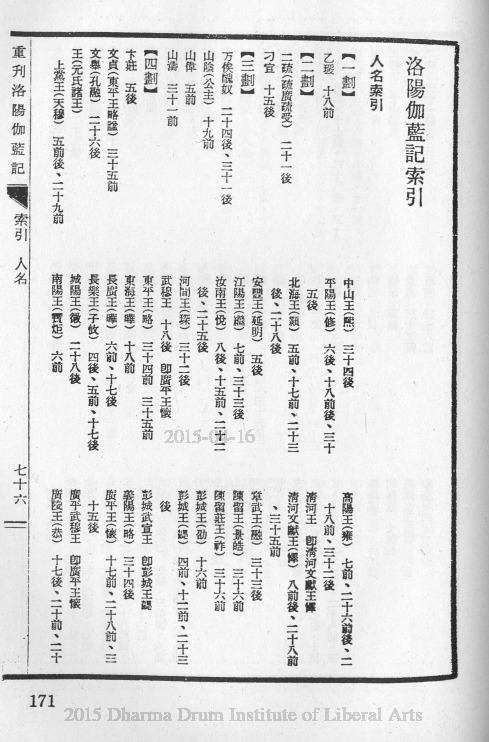 洛陽伽藍記索引
人名索引
【一劃】
乙瑗　十八前
【二劃】
二疏(疏廣疏受)　二十一後
刁宣　十五後
【三劃】
万俟醜奴　二十四後、三十一後
山陰(公主)　十九前
山偉　五前
山濤　三十一前
【四劃】
卞莊　五後
文貞(東平王略諡)　三十五前
文舉(孔融)　二十六後
王(元氏諸王)
上黨王(天穆)　五前後、二十九前
中山王(熙)　三十四後
平陽王(修)　六後、十八前後、三十
五後
北海王(顥)　五前、十七前、二十三
後、二十八後
安豐王(延明)　五後
江陽王(繼)　七前、三十三後
汝南王(悅)　八後、十五前、二十二
後、二十五後
河間王(琛)　三十二後
武穆王　十八後　卽廣平王懷
東平王(略)　三十四前　三十五前
東海王(曄)　十八前
長廣王(曄)　六前、十七後
長樂王(子攸)　四後、五前、十七後
城陽王(徽)　二十八後
南陽王(寶炬)　六前
高陽王(雍)　七前、二十六前後、二
十八前、三十二後
清河王　卽清河文獻王懌
清河文獻王(懌)　八前後、二十八前
、三十五前
章武王(融)　三十三後
陳留王(景皓)　三十六前
陳留莊王(祚)　三十六前
彭城王(劭)　十六前
彭城王(勰)　四前、十二前、二十三
後
彭城武宣王　卽彭城王勰
義陽王(略)　三十四後
廣平王(懷)　十七前、二十八前、三
十五後
廣平武穆王　卽廣平王懷
廣陵王(恭)　十七後、二十前、二十
重刋洛陽伽藍記
索引　人名
七十六
171
2015-04-16
2015 Dharma Drum Institute of Liberal Arts